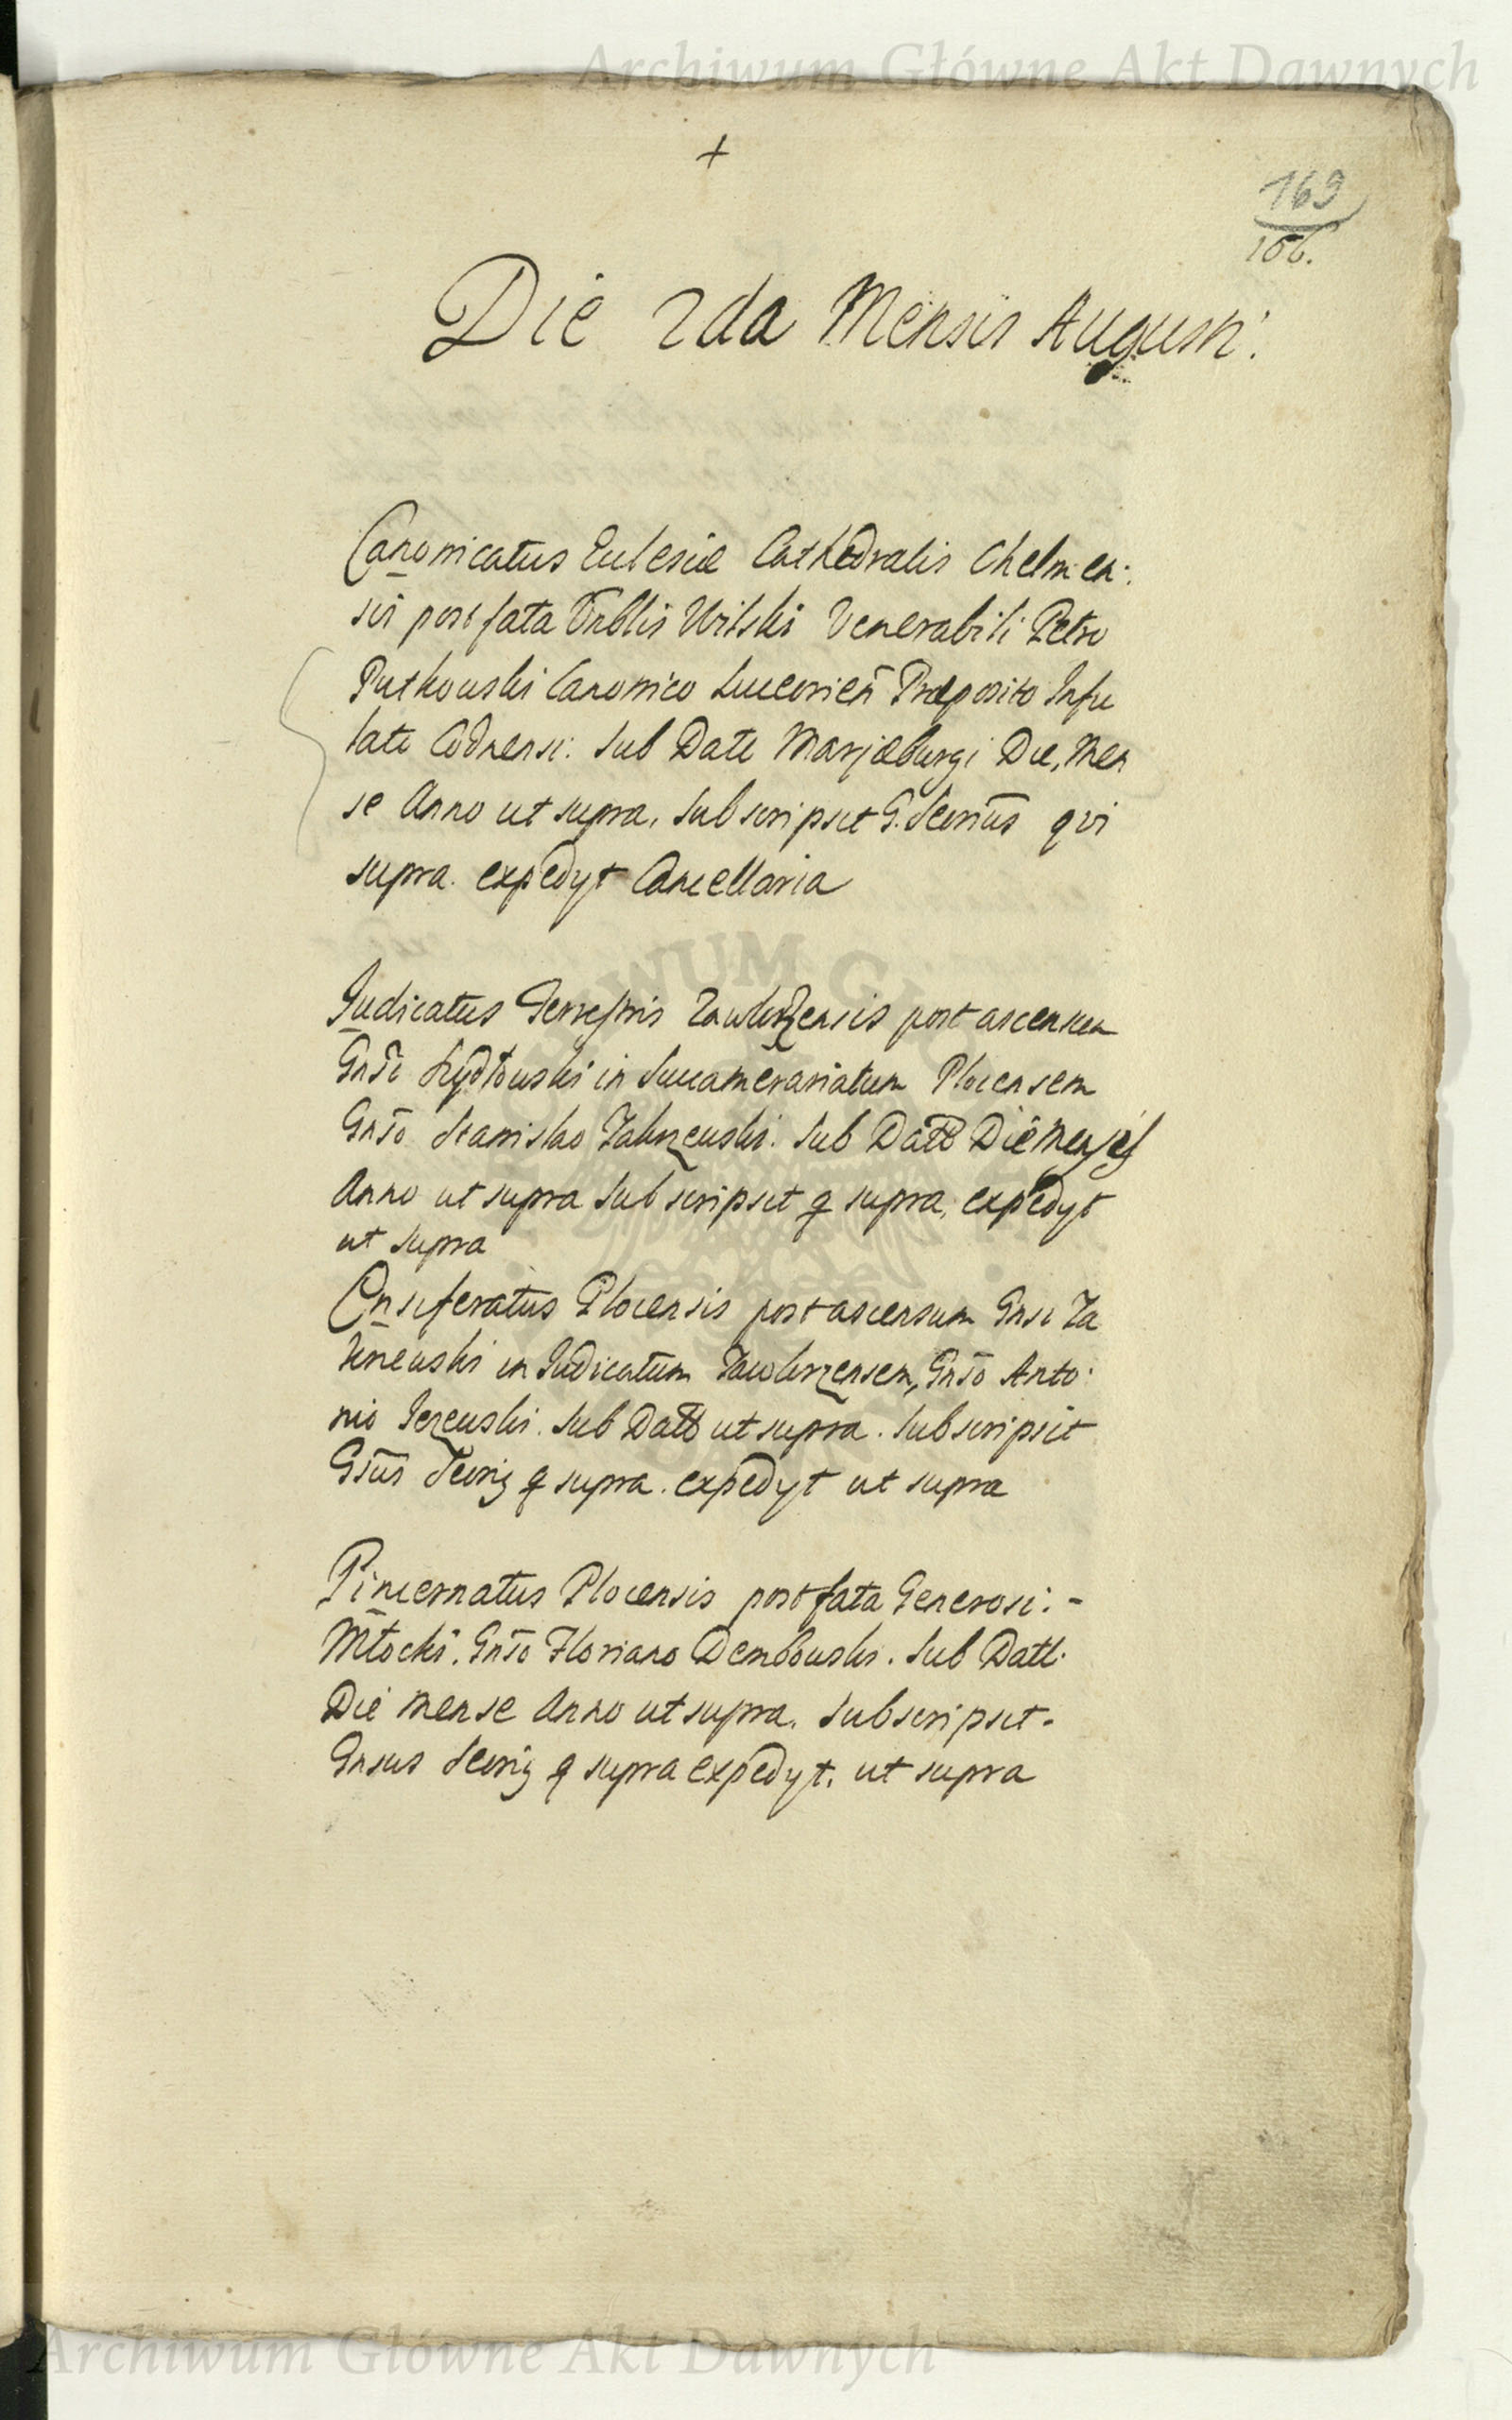 Archiwum Główne Akt Dawnych
+
169
106.
Die 2da Mensis Augusti.
Canonicatus Eclesiæ Cathedralis Chelmen:
sis post fata Vnblis Wilski Venerabili Petro
Putkowski Canonico Luceorien Præposito Infu
lato Codnensi: Sub Date Marjæburgi Die, Men
se Anno ut supra. Subscripsit G. Secrius qvi
supra. expedyt Cancellaria
Judicatus Terrestris Zawkrzensis post ascensum
Gnsi Szydłowski in Succamerariatum Plocensem
Gnso Stanislao Zakrzewski. Sub Datt Die Mense
Anno ut supra Subscripsit q supra, expedyt
ut supra
Ensiferatus Plocensis post ascensum Gnsi Za
krzewski in Judicatum Zawkrzensem, Gnso Anto:
nio Jezewski. Sub Datt ut supra. Subscripsit
Gsus Secrig q supra. expedyt ut supra
Pincernatus Plocensis post fata Generosi: -
Młocki. Gnso Floriano Dembowski. Sub Datt.
Die Mense Anno ut supra. Subscripsit.
Gnsus Secrig q supra expedyt. ut supra
Archiwum Główne Akt Dawnych